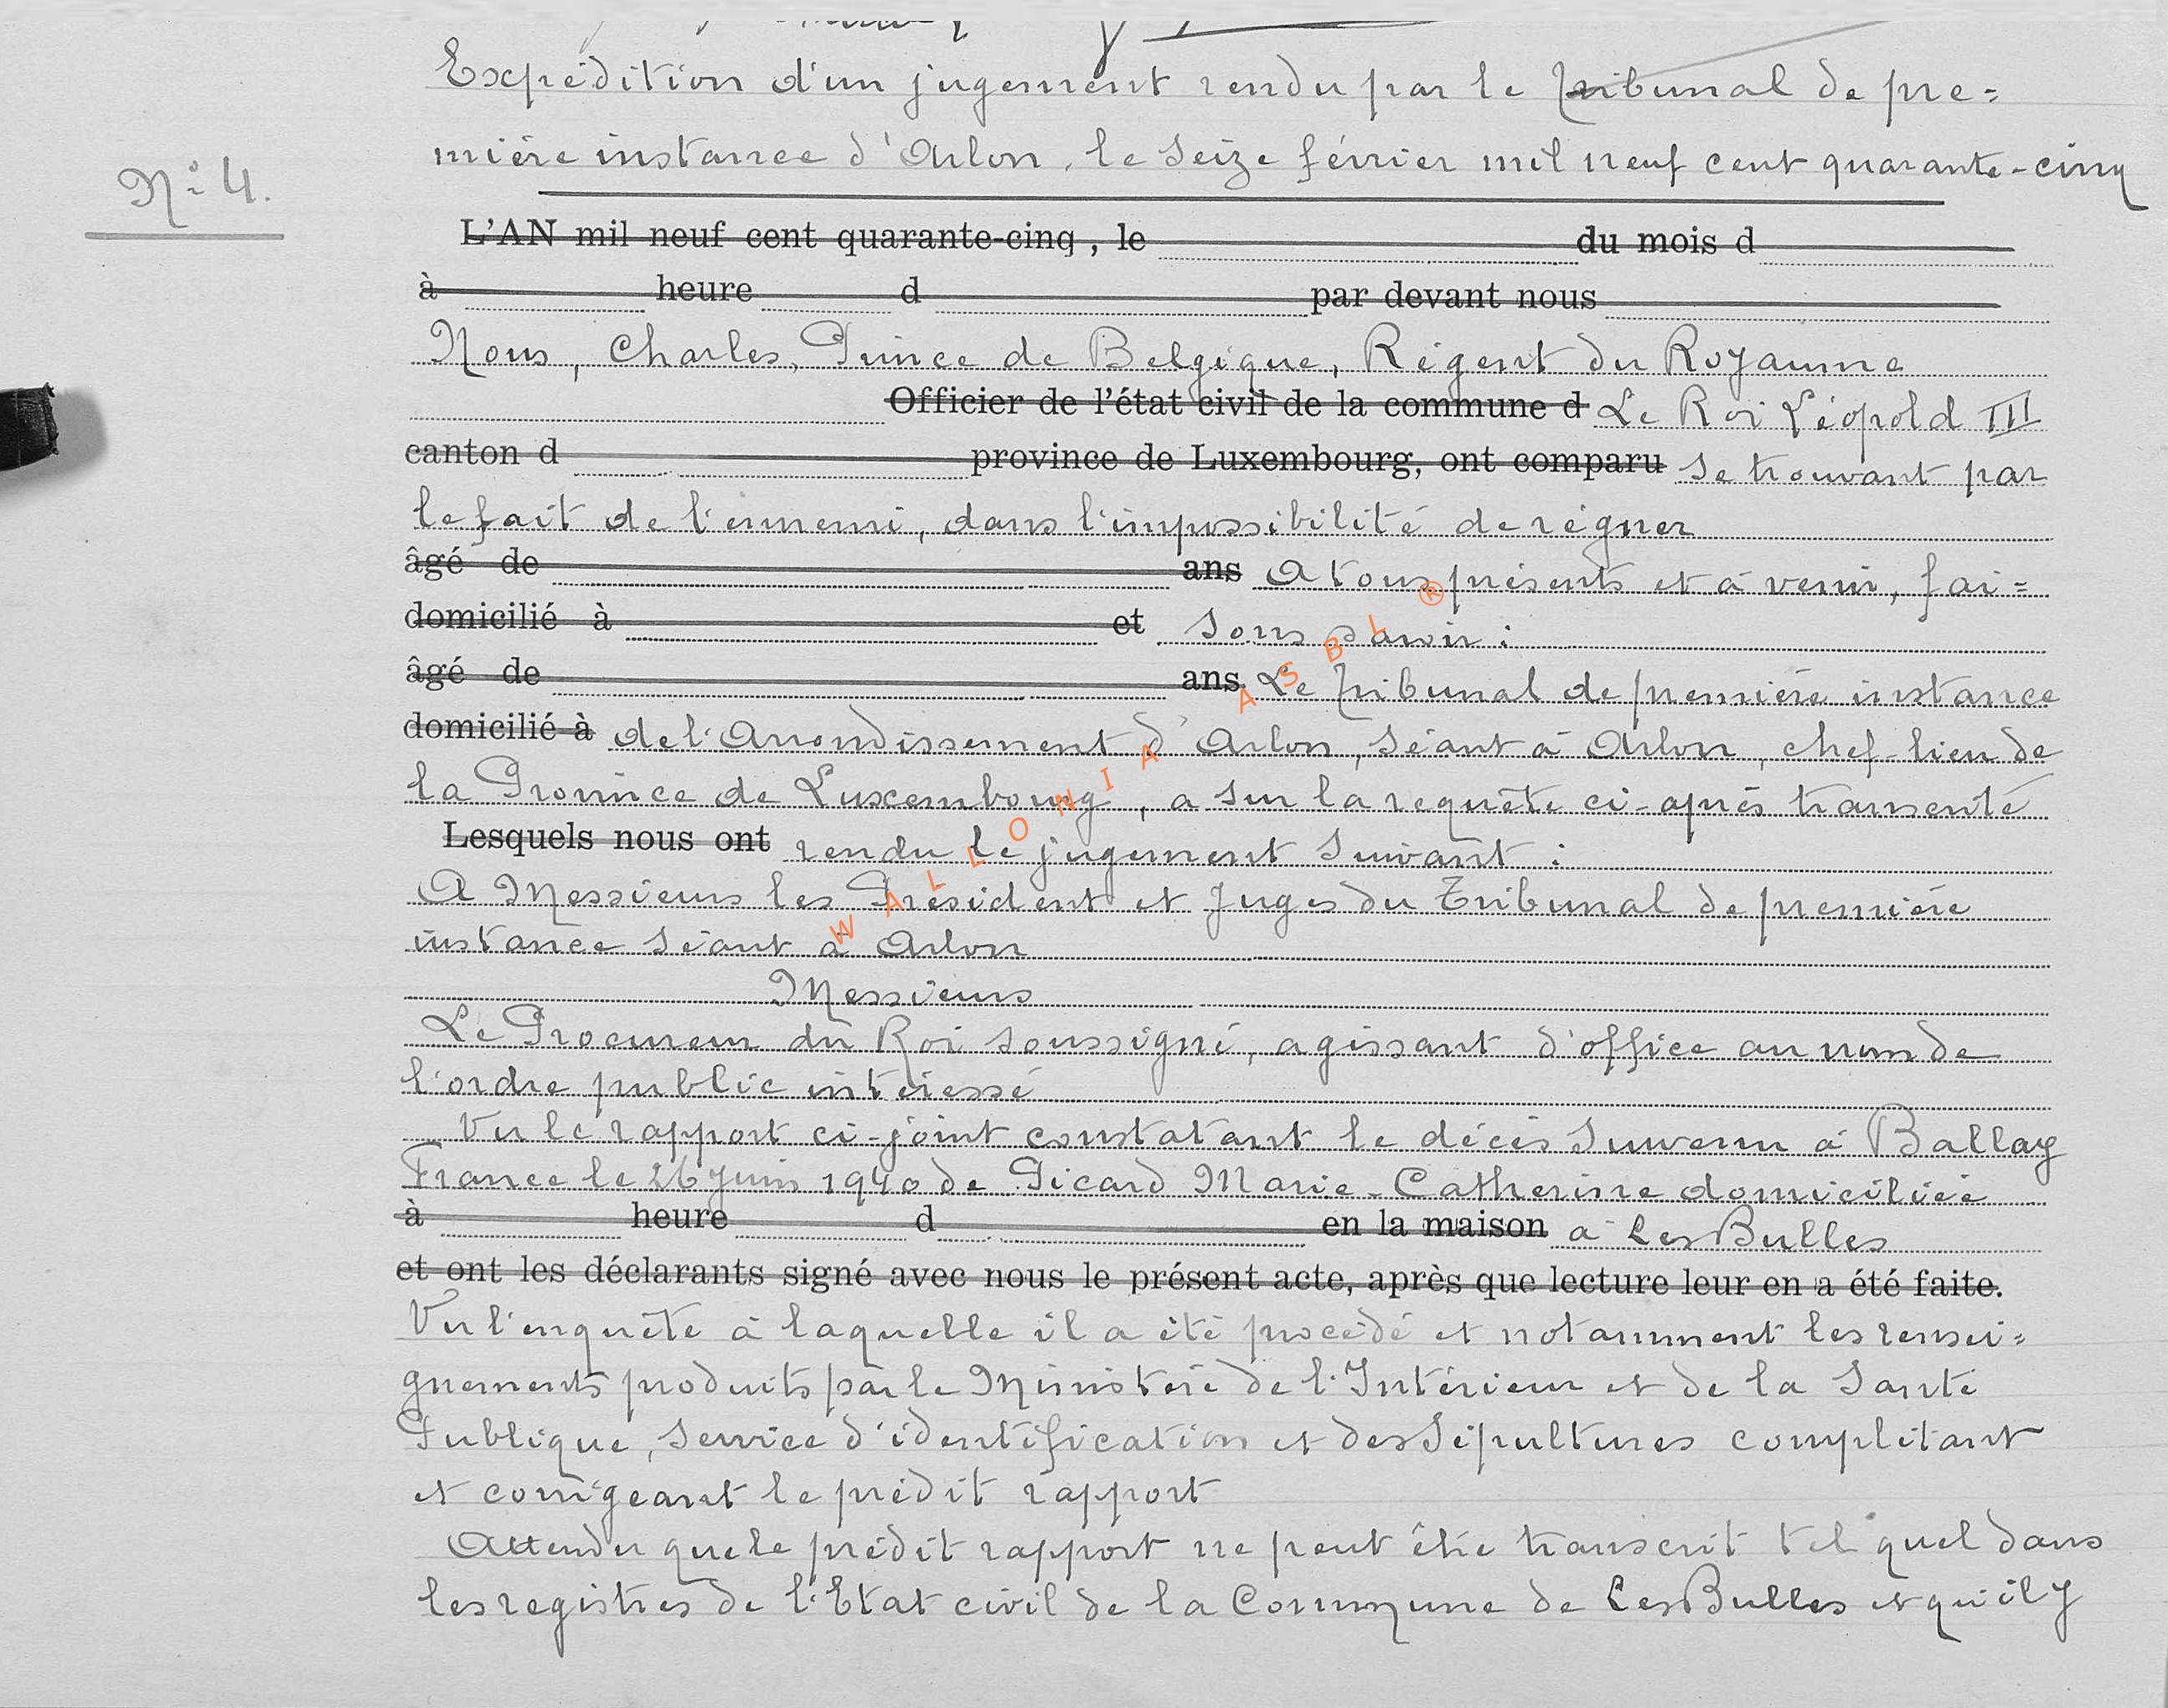 Expédition d'un jugement rendu par le Tribunal de pre=
mière instance d'Arlon, le seize février mil neuf cent quarante-cinq
N° 4.
L'AN mil neuf cent quarante-cinq, le du mois d
à heure d par devant nous
Nous, Charles, Prince de Belgique, Régent du Royaume
Officier de l'état civil de la commune d Le Roi Léopold III
canton d province de Luxembourg, ont comparu se trouvant par
le fait de l'ennemi, dans l'impossibilité de régner
âgé de ans A tous présents et à venir, fai=
domicilié à et sons savoir :
âgé de ans Le Tribunal de première instance
domicilié à de l'Arrondissement d'Arlon, séant à Arlon, chef-lieu de
la Province de Luxembourg, a sur la requête ci-après transcrite
Lesquels nous ont rendu le jugement suivant :
A Messieurs les Président et Juges du Tribunal de première
instance séant à Arlon
Messieurs
Le Procureur du Roi soussigné, agissant d'office au nom de
l'ordre public intéressé
Vu le rapport ci-joint constatant le décès survenu à Ballay
France le 26 Juin 1940 de Picard Marie-Catherine domiciliée
à heure d en la maison à Les Bulles
et ont les déclarants signé avec nous le présent acte, après que lecture leur en a été faite.
Vu l'enquête à laquelle il a été procédé et notamment les rensei=
gnements produits par le Ministère de l'Intérieur et de la Santé
Publique, service d'identification et des Sépultures complétant
et corrigeant le prédit rapport
Attendu que le prédit rapport ne peut être transcrit tel quel dans
les registres de l'Etat civil de la Commune de Les Bulles et qu'il y
WALLONIA ASBL ®